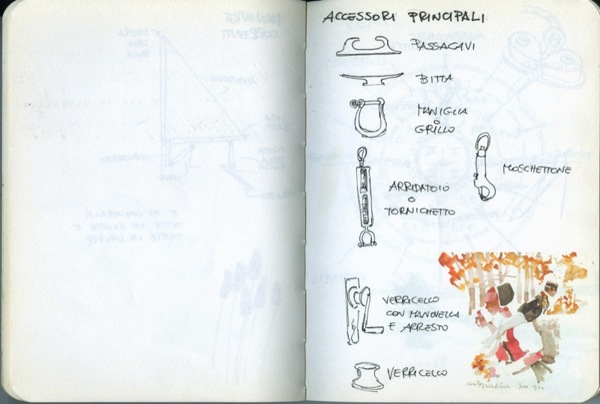 ACCESSORI PRINCIPALI
PASSACAVI
BITTA
MANIGLIA
O
GRILLO
MOSCHETTONE
ARRIDATOIO
O
TORNICHETTO
VERRICELLO
CON MANOVELLA
E ARRESTO
VERRICELLO